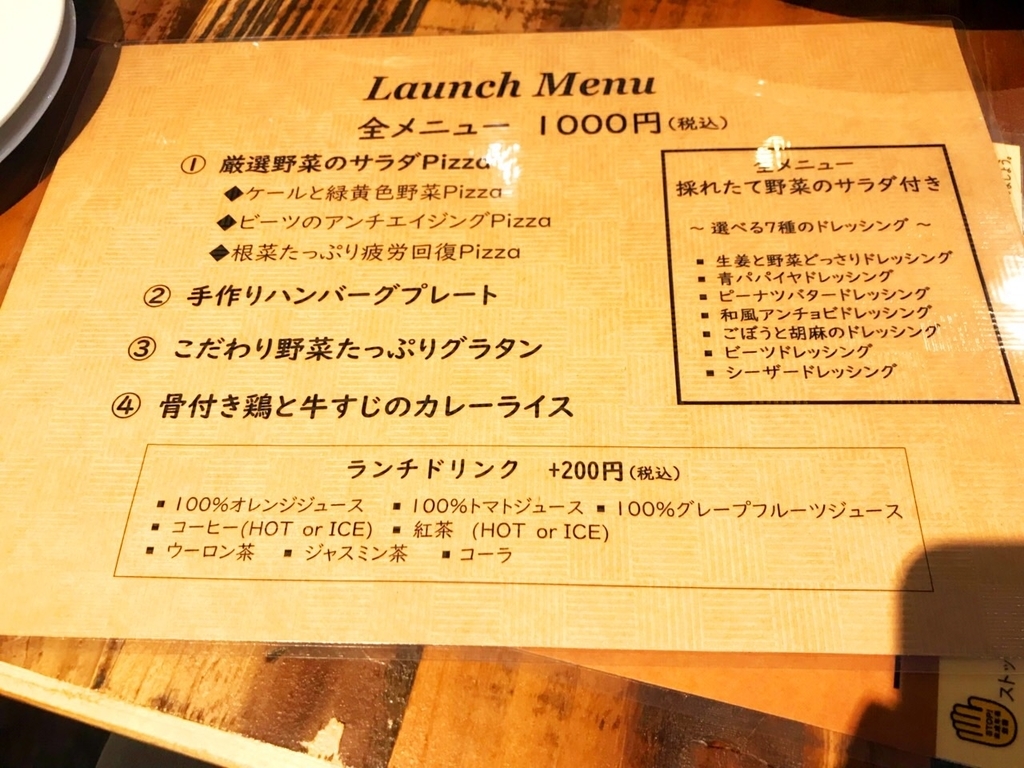 Launch Menu
全メニュー 1000円(税込)
① 厳選野菜のサラダPizza
◆ケールと緑黄色野菜Pizza
◆ビーツのアンチエイジングPizza
◆根菜たっぷり疲労回復Pizza
② 手作りハンバーグプレート
③ こだわり野菜たっぷりグラタン
④ 骨付き鶏と牛すじのカレーライス
全メニュー
採れたて野菜のサラダ付き
～ 選べる7種のドレッシング ～
▪ 生姜と野菜どっさりドレッシング
▪ 青パパイヤドレッシング
▪ ピーナツバタードレッシング
▪ 和風アンチョビドレッシング
▪ ごぼうと胡麻のドレッシング
▪ ビーツドレッシング
▪ シーザードレッシング
ランチドリンク +200円(税込)
▪ 100%オレンジジュース ▪ 100%トマトジュース ▪ 100%グレープフルーツジュース
▪ コーヒー(HOT or ICE) ▪ 紅茶 (HOT or ICE)
▪ ウーロン茶 ▪ ジャスミン茶 ▪ コーラ
ストッ
STOP!